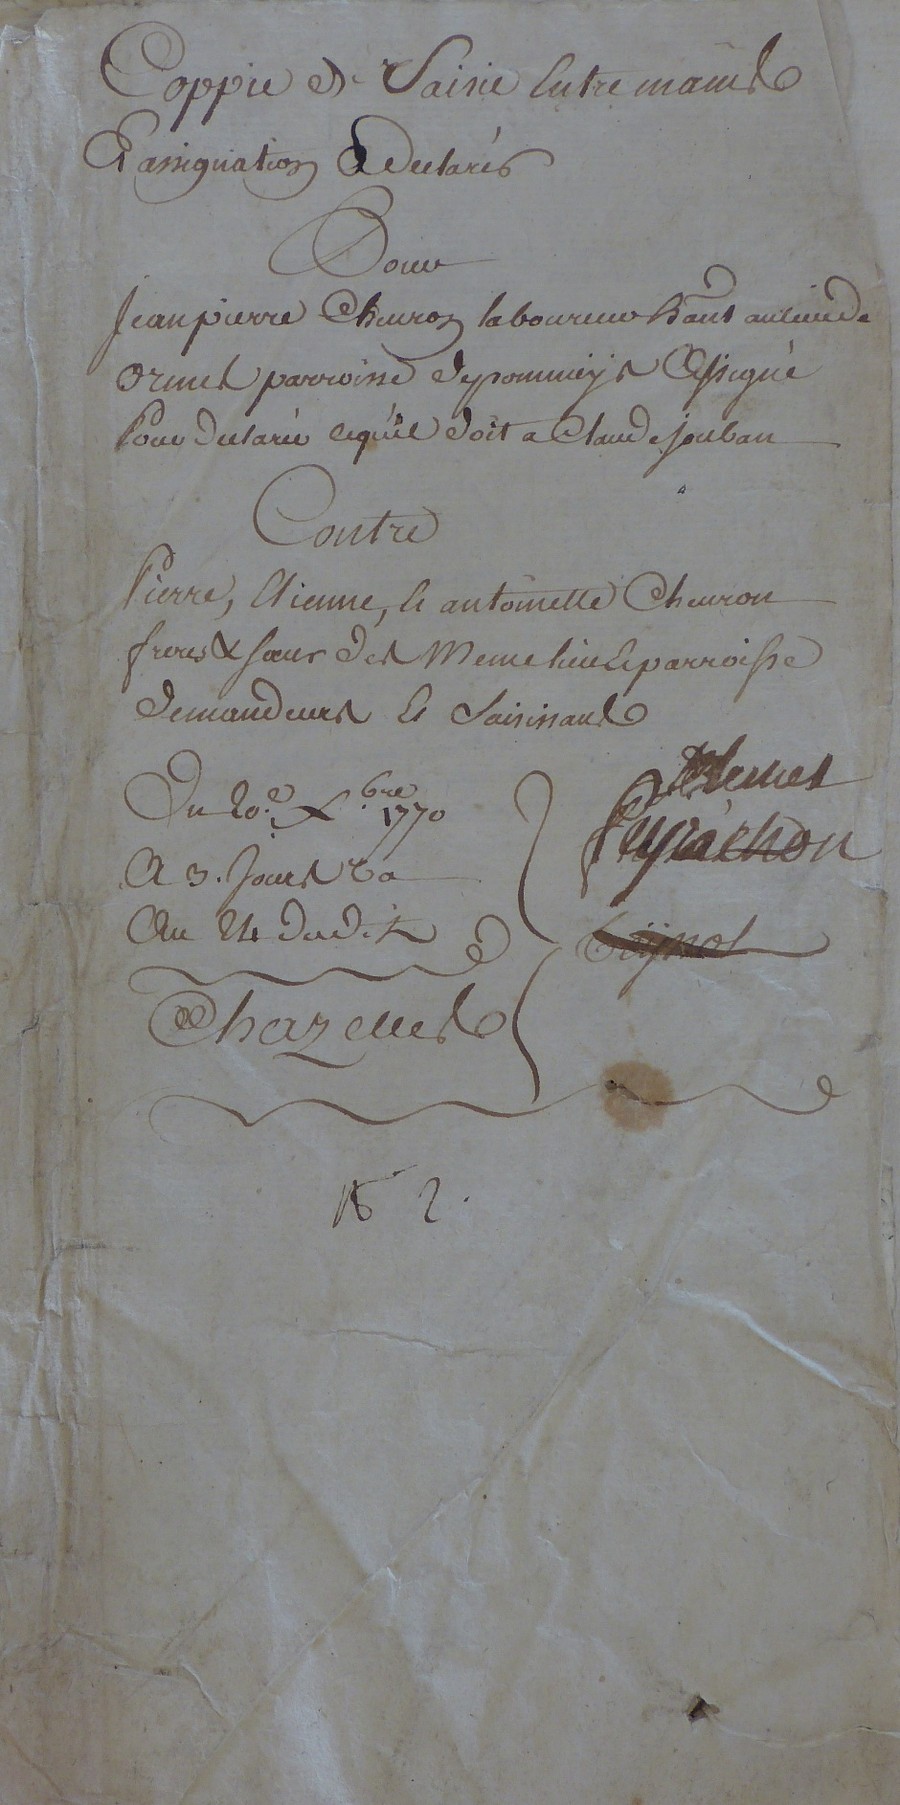 Coppie de Saisie Entre mains
Et assignation a declarer
Pour
Jean pierre Chevron laboureur h.ant au lieu de
ormes parroisse de pommiers Assigné
Pour declarer cequil doit a Claude jouban
Contre
Pierre, Etienne, et antoinette Chevron
freres & sœur des Meme lieu et parroisse
demandeurs et saisissants
Du 20.e X.bre 1770
A 3. Jours
Au 24 dudit
Chazelles